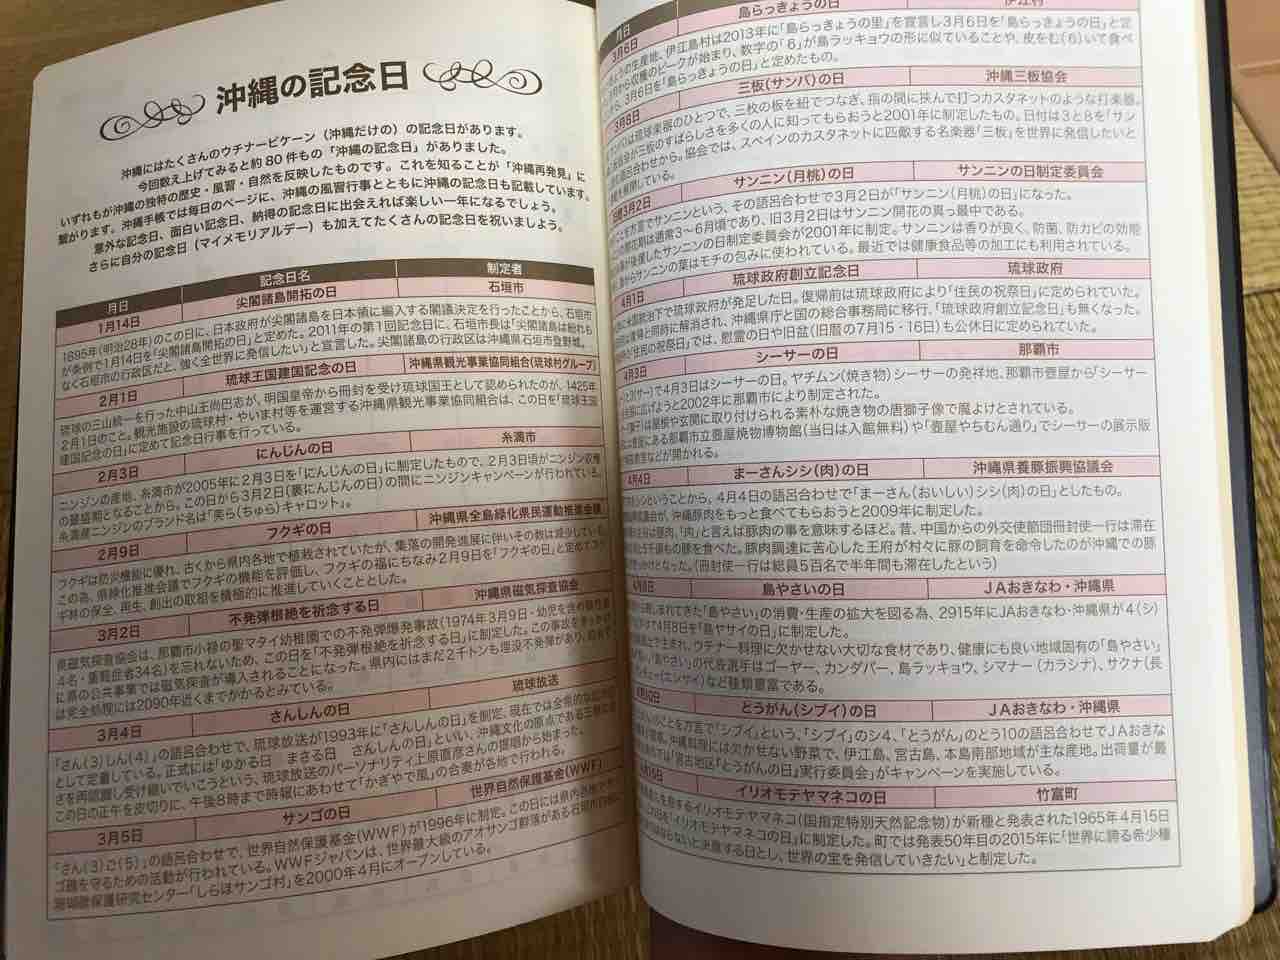 沖縄の記念日
沖縄にはたくさんのウチナービケーン（沖縄だけの）の記念日があります。
今回数え上げてみると約80件もの「沖縄の記念日」がありました。
いずれもが沖縄の独特の歴史・風習・自然を反映したものです。これを知ることが「沖縄再発見」に
繋がります。沖縄手帳では毎日のページに、沖縄の風習行事とともに沖縄の記念日も記載しています。
意外な記念日、面白い記念日、納得の記念日に出会えれば楽しい一年になるでしょう。
さらに自分の記念日（マイメモリアルデー）も加えてたくさんの記念日を祝いましょう。
月日 記念日名 制定者
1月14日 尖閣諸島開拓の日 石垣市
1895年（明治28年）のこの日に、日本政府が尖閣諸島を日本領に編入する閣議決定を行ったことから、石垣市
が条例で1月14日を「尖閣諸島開拓の日」と定めた。2011年の第1回記念日に、石垣市長は「尖閣諸島は紛れも
なく石垣市の行政区だと、強く全世界に発信したい」と宣言した。尖閣諸島の行政区は沖縄県石垣市登野城。
2月1日 琉球王国建国記念の日 沖縄県観光事業協同組合（琉球村グループ）
琉球の三山統一を行った中山王尚巴志が、明国皇帝から冊封を受け琉球国王として認められたのが、1425年
2月1日のこと。観光施設の琉球村・やいま村等を運営する沖縄県観光事業協同組合は、この日を「琉球王国
建国記念の日」に定めて記念日行事を行っている。
2月3日 にんじんの日 糸満市
ニンジンの産地、糸満市が2005年に2月3日を「にんじんの日」に制定したもので、2月3日頃がニンジン収穫
の最盛期となることから。この日から3月2日（裏にんじんの日）の間にニンジンキャンペーンが行われている。
糸満産ニンジンのブランド名は「美ら（ちゅら）キャロット」。
2月9日 フクギの日 沖縄県全島緑化県民運動推進会議
フクギは防災機能に優れ、古くから県内各地で植栽されていたが、集落の開発進展に伴いその数は減少している。
この為、県緑化推進会議でフクギの機能を評価し、フクギの福にちなみ2月9日を「フクギの日」と定めてフク
ギ林の保全、再生、創出の取組を積極的に推進していくこととした。
3月2日 不発弾根絶を祈念する日 沖縄県磁気探査協会
県磁気探査協会は、那覇市小禄の聖マタイ幼稚園での不発弾爆発事故（1974年3月9日・幼児を含め
4名・重軽症者34名）を忘れないため、この日を「不発弾根絶を祈念する日」に制定した。この事故をきっかけ
に県の公共事業では磁気探査が導入されることになった。県内にはまだ2千トンも埋没不発弾があり、
は完全処理には2090年近くまでかかるとみている。
3月4日 さんしんの日 琉球放送
「さん（3）しん（4）」の語呂合わせで、琉球放送が1993年に「さんしんの日」を制定、現在では全県的な
として定着している。正式には「ゆかる日 まさる日 さんしんの日」といい、沖縄文化の原点である三線
さを再認識し受け継いでいこうという、琉球放送のパーソナリティ上原直彦さんの提唱から始まった。
この日の正午を皮切りに、午後8時まで時報にあわせて「かぎやで風」の合奏が各地で行われる。
3月5日 サンゴの日 世界自然保護基金（WWF）
「さん（3）ご（5）」の語呂合わせで、世界自然保護基金（WWF）が1996年に制定。この日には県内各地で
ゴ礁を守るための活動が行われている。WWFジャパンは、世界最大級のアオサンゴ群落がある石垣市
珊瑚礁保護研究センター「しらほサンゴ村」を2000年4月にオープンしている。
月日
3月6日 島らっきょうの日 伊江村
きょうの生産地、伊江島村は2013年に「島らっきょうの里」を宣言し3月6日を「島らっきょうの日」と定
3月から収穫のピークが始まり、数字の「6」が島ラッキョウの形に似ていることや、皮をむ（6）いて食べ
ら、3月6日を「島らっきょうの日」と定めたもの。
3月8日 三板（サンバ）の日 沖縄三板協会
バは琉球楽器のひとつで、三枚の板を紐でつなぎ、指の間に挟んで打つカスタネットのような打楽器。
板協会が三板のすばらしさを多くの人に知ってもらおうと2001年に制定したもの。日付は3と8を「サン
語呂合わせから。協会では、スペインのカスタネットに匹敵する名楽器「三板」を世界に発信したいと
を展開している。
旧暦3月2日 サンニン（月桃）の日 サンニンの日制定委員会
を方言でサンニンという、その語呂合わせで3月2日が「サンニン（月桃）の日」になった。
開花期は通常3～6月頃であり、旧3月2日はサンニン開花の真っ最中である。
が後援したサンニンの日制定委員会が2001年に制定。サンニンは香りが良く、防菌、防カビの効能
からサンニンの葉はモチの包みに使われている。最近では健康食品等の加工にも利用されている。
4月1日 琉球政府創立記念日 琉球政府
に米国統治下で琉球政府が発足した日。復帰前は琉球政府により「住民の祝祭日」に定められていた。
は復帰と同時に解消され、沖縄県庁と国の総合事務局に移行、「琉球政府創立記念日」も無くなった。
「住民の祝祭日」では、慰霊の日や旧盆（旧暦の7月15・16日）も公休日に定められていた。
4月3日 シーサーの日 那覇市
（サー）で4月3日はシーサーの日。ヤチムン（焼き物）シーサーの発祥地、那覇市壺屋から「シーサー
を全国に広げようと2002年に那覇市により制定された。
ー（獅子）は屋根や玄関に取り付けられる素朴な焼き物の唐獅子像で魔よけとされている。
は壺屋にある那覇市立壺屋焼物博物館（当日は入館無料）や「壺屋やちむん通り」でシーサーの展示販
などが開かれる。
4月4日 まーさんシシ（肉）の日 沖縄県養豚振興協議会
シシということから。4月4日の語呂合わせで「まーさん（おいしい）シシ（肉）の日」としたもの。
協議会が、沖縄豚肉をもっと食べてもらおうと2009年に制定した。
は豚肉、「肉」と言えば豚肉の事を意味するほど。昔、中国からの外交使節団冊封使一行は滞在
5千頭もの豚を食べた。豚肉調達に苦心した王府が村々に豚の飼育を命令したのが沖縄での豚
きっかけとなった。（冊封使一行は総員5百名で半年間も滞在したという）
4月8日 島やさいの日 JAおきなわ・沖縄県
親しまれてきた「島やさい」の消費・生産の拡大を図る為、2915年にJAおきなわ・沖縄県が4（シ）
4月8日を「島ヤサイの日」に制定した。
風土で生まれ、ウチナー料理に欠かせない大切な食材であり、健康にも良い地域固有の「島やさい」
「島やさい」の代表選手はゴーヤー、カンダバー、島ラッキョウ、シマナー（カラシナ）、サクナ（長
ンチェー（エンサイ）など種類豊富である。
4月10日 とうがん（シブイ）の日 JAおきなわ・沖縄県
のことを方言で「シブイ」という、「シブイ」のシ4、「とうがん」のとう10の語呂合わせでJAおきな
が制定。沖縄料理には欠かせない野菜で、伊江島、宮古島、本島南部地域が主な産地。出荷量が最
「宮古地区『とうがんの日』実行委員会」がキャンペーンを実施している。
4月15日 イリオモテヤマネコの日 竹富町
を有するイリオモテヤマネコ（国指定特別天然記念物）が新種と発表された1965年4月15日
日を「イリオモテヤマネコの日」に制定した。町では発表50年目の2015年に「世界に誇る希少種
ならないと決意する日とし、世界の宝を発信していきたい」と制定した。